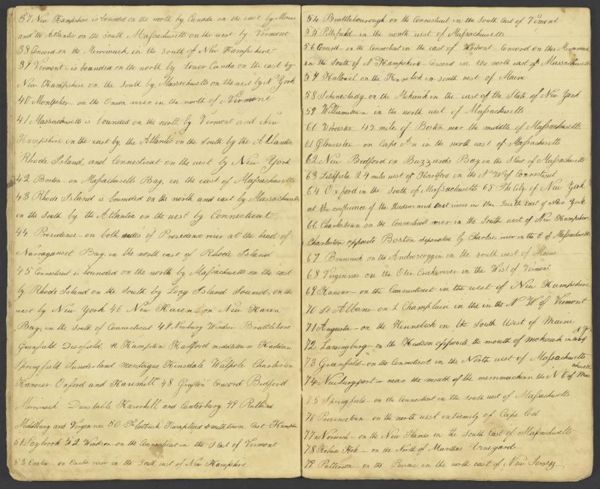 37 New Hampshire is bounded on the north by Canada on the east by Maine
and the Atlantic on the South Massachusetts on the west by Vermont
38 Concord on the Merrimack in the south of New Hampshire
39 Vermont is bounded on the north by Lower Canada on the east by
New Hampshire on the South by Massachusetts on the west by N York
40 Montpelier on the Onion river in the north of Vermont
41 Massachusetts is bounded on the north by Vermont and New
Hampshire on the east by the Atlantic on the south by the Atlantic
Rhode Island, and Connecticut on the west by New York
42 Boston on Massachusetts Bay, in the east of Massachusetts
43 Rhode Island is bounded on the north and east by Massachusetts
in the south by the Atlantic on the west by Connecticut
44 Providence on both sides of Providence river at the head of
Narraganset Bay, in the north east of Rhode Island
45 Connecticut is bounded on the north by Massachusetts on the east
by Rhode Island on the south, by Long Island Sound, on the
west by New York 46 New Haven on New Haven
Bay, in the South of Connecticut 47 Windsor Brattleboro
Greenfield Deerfield Hampton Hartford Middletown Haddam
Springfield Sunderland Montague Hinsdale Walpole Charleston
Hanover Oxford and Haverhill 48 Concord Bedford
Merrimack Dunstable Haverhill and 49 Rutland
Middlebury and Vergennes 50 Northampton East
51 Saybrook 52 Windsor on the Connecticut in the East of Vermont
53 on river in the South east of New Hampshire
54 Brattleborough on the Connecticut in the South East of Vermont
55 Pittsfield in the north west of Massachusetts
56 Concord on the Merrimack
in the South of N Hampshire Concord in the north east of Massachusetts
57 Hallowell on the Kennebeck in south west of Maine
58 Schenectady on the Mohawk in the east of the State of New York
59 Williamstown in the north west of Massachusetts
60 Worcester 42 mile of Boston near the middle of Massachusetts
61 Gloucester on Cape Ann in the north east of Massachusetts
62 New Bedford on Buzzards Bay in the State of Massachusetts
63 Litchfield 24 miles west of Hartford in the N W of Connecticut
64 Oxford in the South of Massachusetts 65 The City of New York
at the confluence of the Hudson and east rivers in the South east of New York
66 Charlestown on the Connecticut river in the South west of New Hampshire
Charlestown opposite Boston separated by Charles river in the E of Massachusetts
67 Brunswick on the Androscoggin in the south west of Maine
68 Vergennes on the Otter Creek river in the West of Vermont
69 Hanover on the Connecticut in the west of New Hampshire
70 St Albans on L Champlain in the N W of Vermont
71 Augusta on the Kennebeck in the South West of Maine
72 Lansingburg in the Hudson opposite the mouth of mohawk in N Y
73 Greenfield on the Connecticut in the North west of Massachusetts
74 Newburyport near the mouth of the merrimack in the N E of Mass
75 Springfield on the Connecticut in the south west of Massachusetts
76 Provincetown on the north west extremity of Cape Cod
77 Norwich on the New Thames in the South East of
78 Holmes Hole on the North of Marthas Vineyard
79 Patterson on the Passaic in the north east of New Jersey